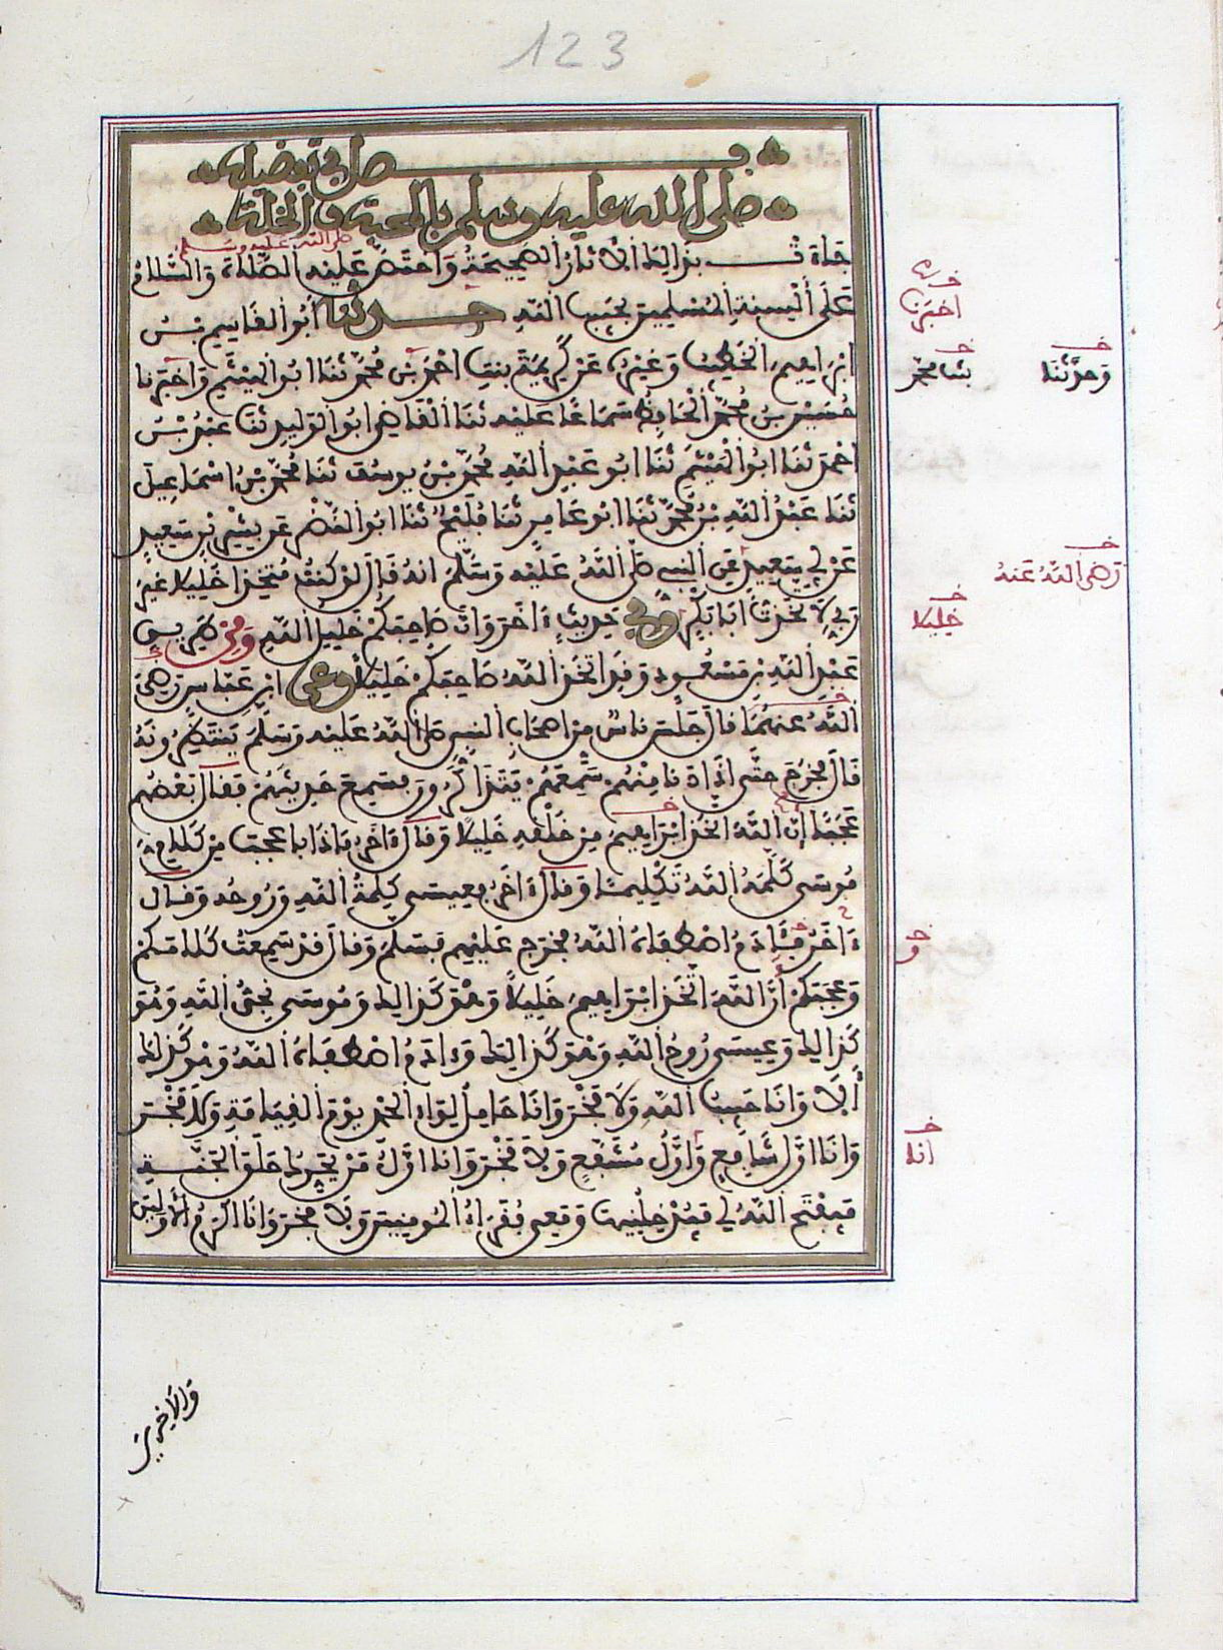 123
فصل في تفضيله
صلى الله عليه وسلم بالمحبة والخلة
جاءت بذالك الآثار الصحيحة واختص عليه الصلاة والسلام
صلى الله عليه وسلم
على ألسنة المسلمين بحبيب الله حدثنا أبو القاسم بن
ابراهيم الخطيب وغيره عن كريمة بنت احمد بن محمد ثنا ابو الهيثم واخبرنا
حسين بن محمد الحافظ سماعا عليه ثنا القاضي ابو الوليد ثنا عبد بن
احمد ثنا ابو الهيثم ثنا ابو عبد الله محمد بن يوسف ثنا محمد بن اسماعيل
ثنا عبد الله بن محمد ثنا ابو عامر ثنا فليح ثنا ابو النضر عن بسر بن سعيد
عن ابي سعيد عن النبي صلى الله عليه وسلم انه قال لو كنت متخذا خليلا غير
ربي لاتخذت ابا بكر وفي حديث ءاخر وان صاحبكم خليل الله ومن طريق
عبد الله بن مسعود وقد اتخذ الله صاحبكم خليلا وعن ابن عباس رضي
الله عنهما قال جلس ناس من اصحاب النبي صلى الله عليه وسلم ينتظرونه
قال فخرج حتى اذا دنا منهم سمعهم يتذاكرون فسمع حديثهم فقال بعضهم
عجبا إن الله اتخذ ابراهيم من خلقه خليلا وقال ءاخر ماذا باعجب من كلام
موسى كلمه الله تكليما وقال ءاخر فعيسى كلمة الله وروحه وقال
ءاخر ءادم اصطفاه الله فخرج عليهم فسلم وقال قد سمعت كلامكم
وعجبكم أن الله اتخذ ابراهيم خليلا وهو كذالك وموسى نجي الله وهو
كذالك وعيسى روح الله وهو كذالك وءادم اصطفاه الله وهو كذلك
ألا وانا حبيب الله ولا فخر وانا حامل لواء الحمد يوم القيامة ولا فخر
وانا اول شافع واول مشفع ولا فخر وانا اول من يحرك حلق الجنة
فيفتح الله لي فيدخلنيها ومعي فقراء المومنين ولا فخر وانا اكرم الاولين
والاخرين
اخبرنا
وحدثنا
ثنا محمد
رضي الله عنه
خليلا
و
انا